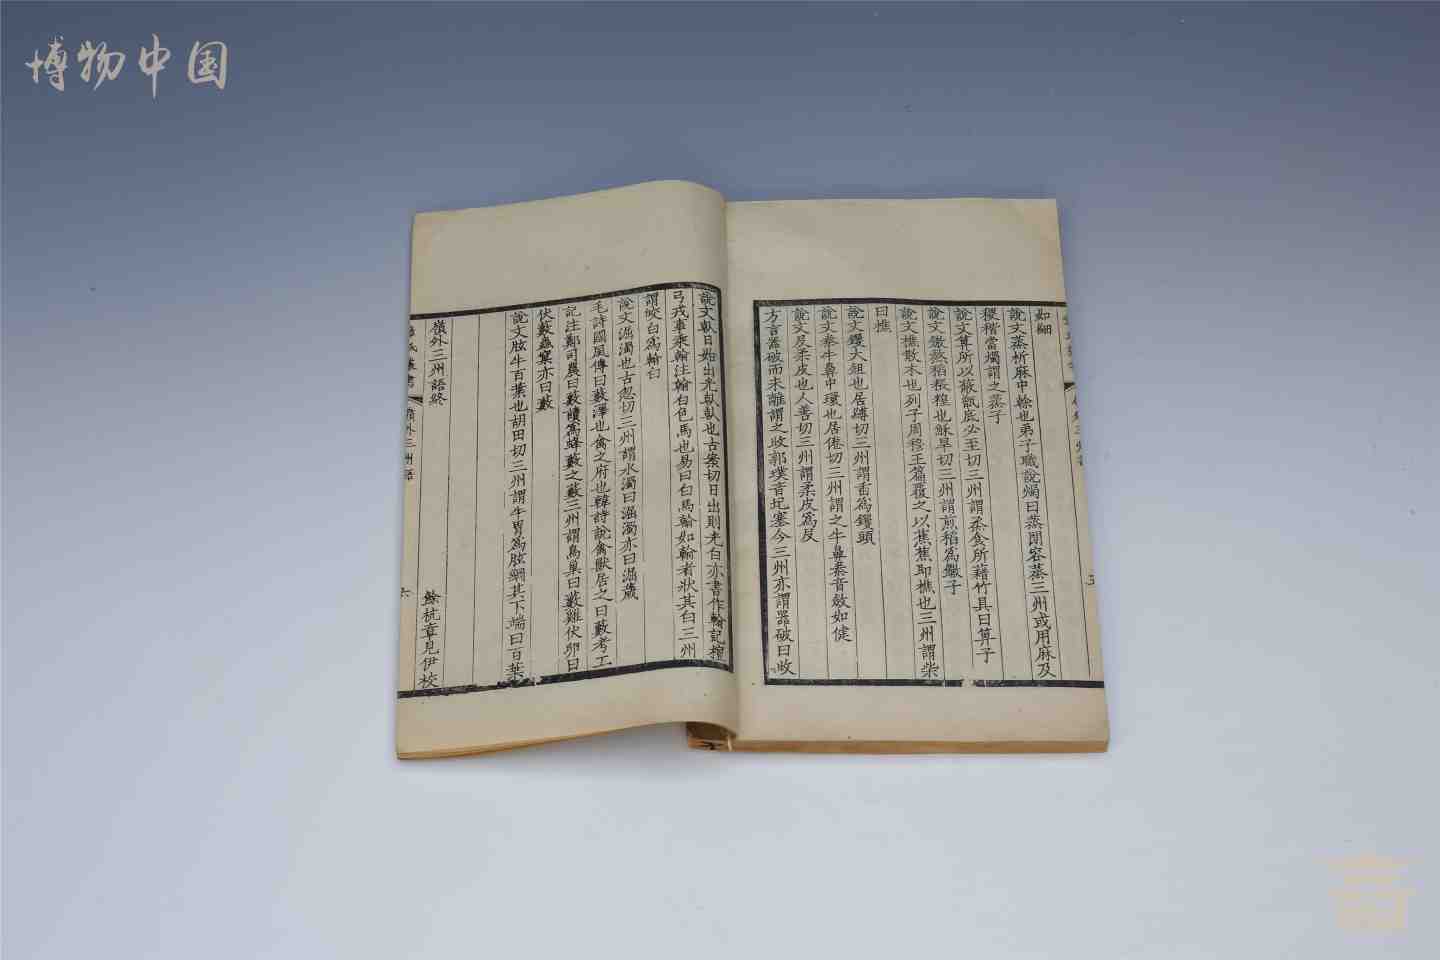 博物中国
如翮
說文蒸析麻中榦也弟子職說燭曰蒸閒容蒸三州或用麻及
稷稭當燭謂之蒸子
說文箅所以蔽甑底必至切三州謂烝食所藉竹具曰箅子
說文𥻦熬稻粻䅣也穌旱切三州謂煎稻為𥻦子
說文樵散木也列子周穆王篇覆之以蕉蕉即樵也三州謂柴
曰樵
說文钁大鉏也居縛切三州謂臿為钁頭
說文桊牛鼻中環也居倦切三州謂之牛鼻桊音斂如健
說文㞋柔皮也人善切三州謂柔皮為㞋
方言器破而未離謂之㪏郭璞音圮塞今三州亦謂器破曰㪏
說文倝日始出光倝倝也古案切日出則光白亦書作翰記檀
弓戎事乘翰注翰白色馬也易曰白馬翰如翰者狀其白三州
謂皎白為翰白
說文淈濁也古忽切三州謂水濁曰淈濁亦曰淈
毛詩國風傳曰藪澤也禽之府也韓詩說禽獸居之曰藪考工
記注鄭司農曰藪讀為蜂藪之藪三州謂鳥巢曰藪雞伏卵曰
伏藪蟲窠亦曰藪
說文胘牛百葉也胡田切三州謂牛胃為胘網其下端曰百葉
嶺外三州語終
餘杭章見伊校
章氏叢書
嶺外三州語
六